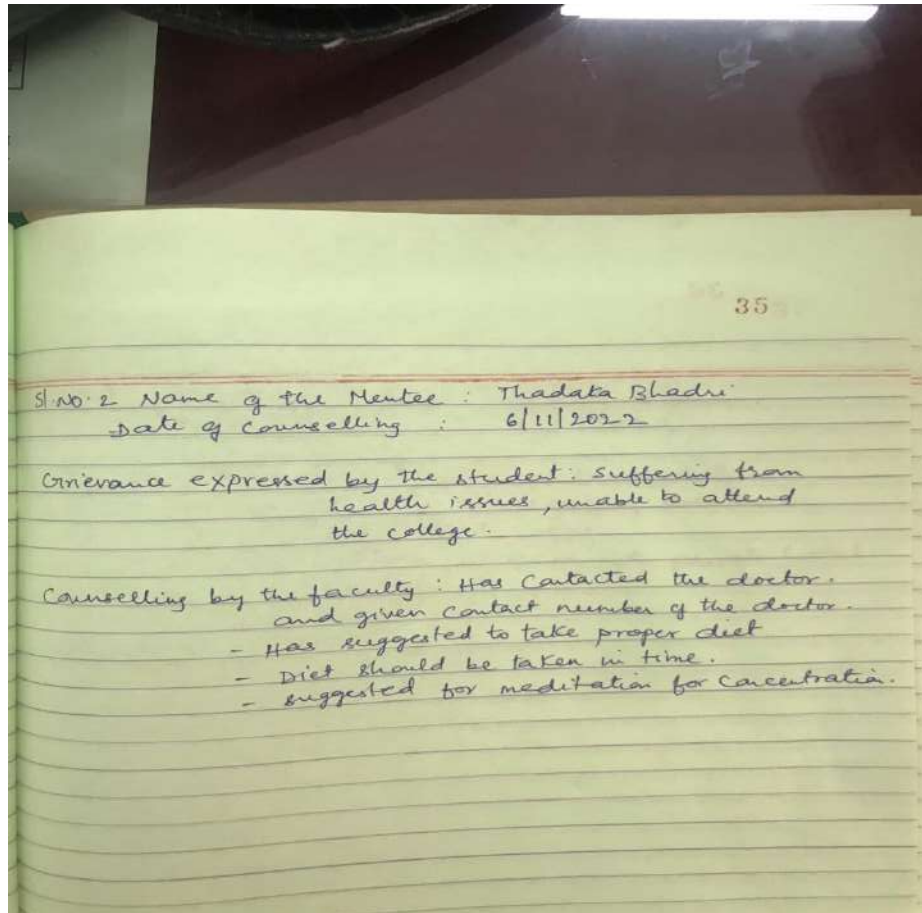 35
Sl.No.2 Name of the Mentee : Thadaka Bhadri
Date of Counselling : 6/11/2022
Grievance expressed by the student: suffering from
health issues, unable to attend
the college.
Counselling by the faculty : Has Contacted the doctor.
and given contact number of the doctor.
- Has suggested to take proper diet
- Diet should be taken in time.
- suggested for meditation for concentration.